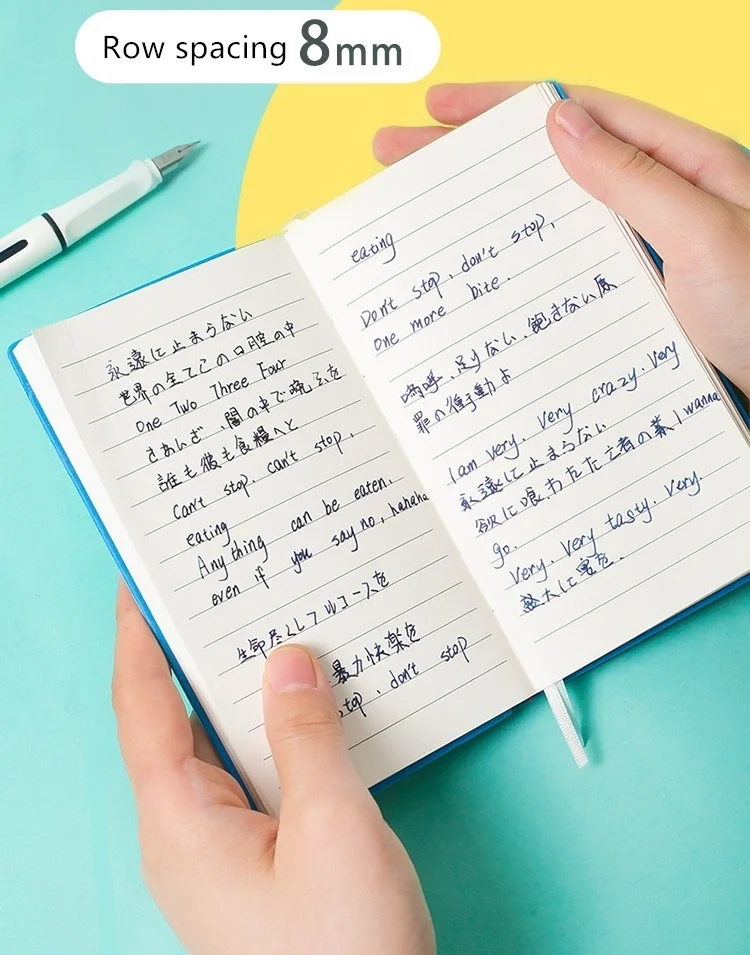 Row spacing 8mm
永遠に止まらない
世界の全てこの口腔の中
One Two Three Four
さあんざ、闇の中で喘ぐを
誰も彼も食糧へと
Can't stop. can't stop.
eating
Any thing can be eaten.
even if you say no, hahaha
生命尽くしてソースを
暴力快楽を
stop. don't stop
eating
Don't stop, don't stop,
One more bite.
嗚呼、足りない、飽きない原
罪の衝動よ
I am very. very crazy. very
永遠に止まらない
欲に喰われた亡者の業 I wanna
go.
Very. very tasty. very.
盛大に宴を.